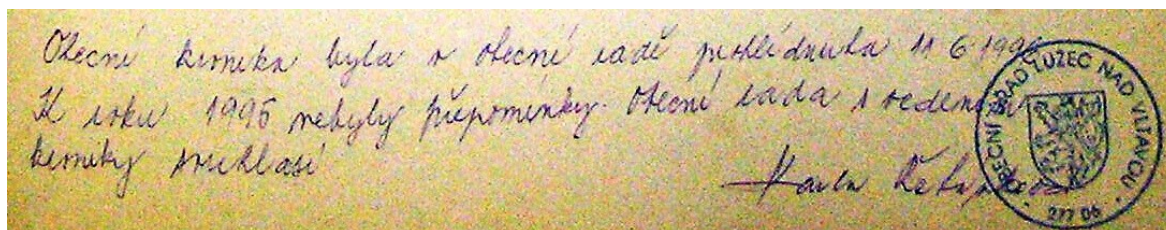 Obecní kronika byla v obecné radě prohlédnuta 11 6 1996
K roku 1995 nebyly připomínky. Obecní rada s vedením
kroniky souhlasí
OBECNÍ ÚŘAD LUŽEC NAD VLTAVOU
277 06